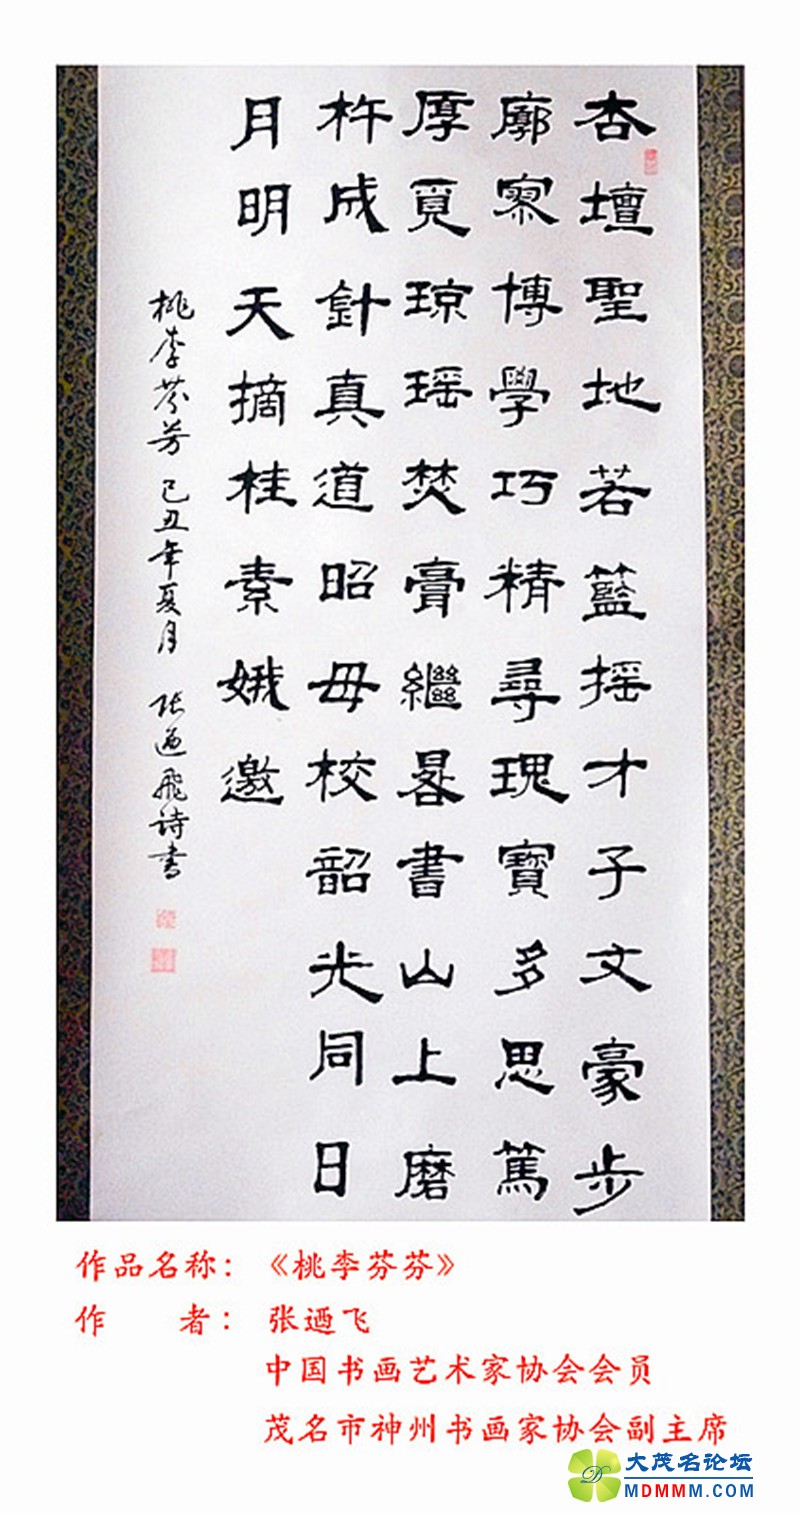 杏壇聖地若籃摇才子文豪步
廓寥博學巧精尋瑰寶多思篤
厚覓琼瑶焚膏繼晷書山上磨
杵成針真道昭母校韶光同日
月明天摘桂素娥邀
桃李芬芳 己丑年夏月 张迺飛詩書
作品名称：《桃李芬芬》
作 者：张迺飞
中国书画艺术家协会会员
茂名市神州书画家协会副主席
大茂名论坛
MDMMM.COM